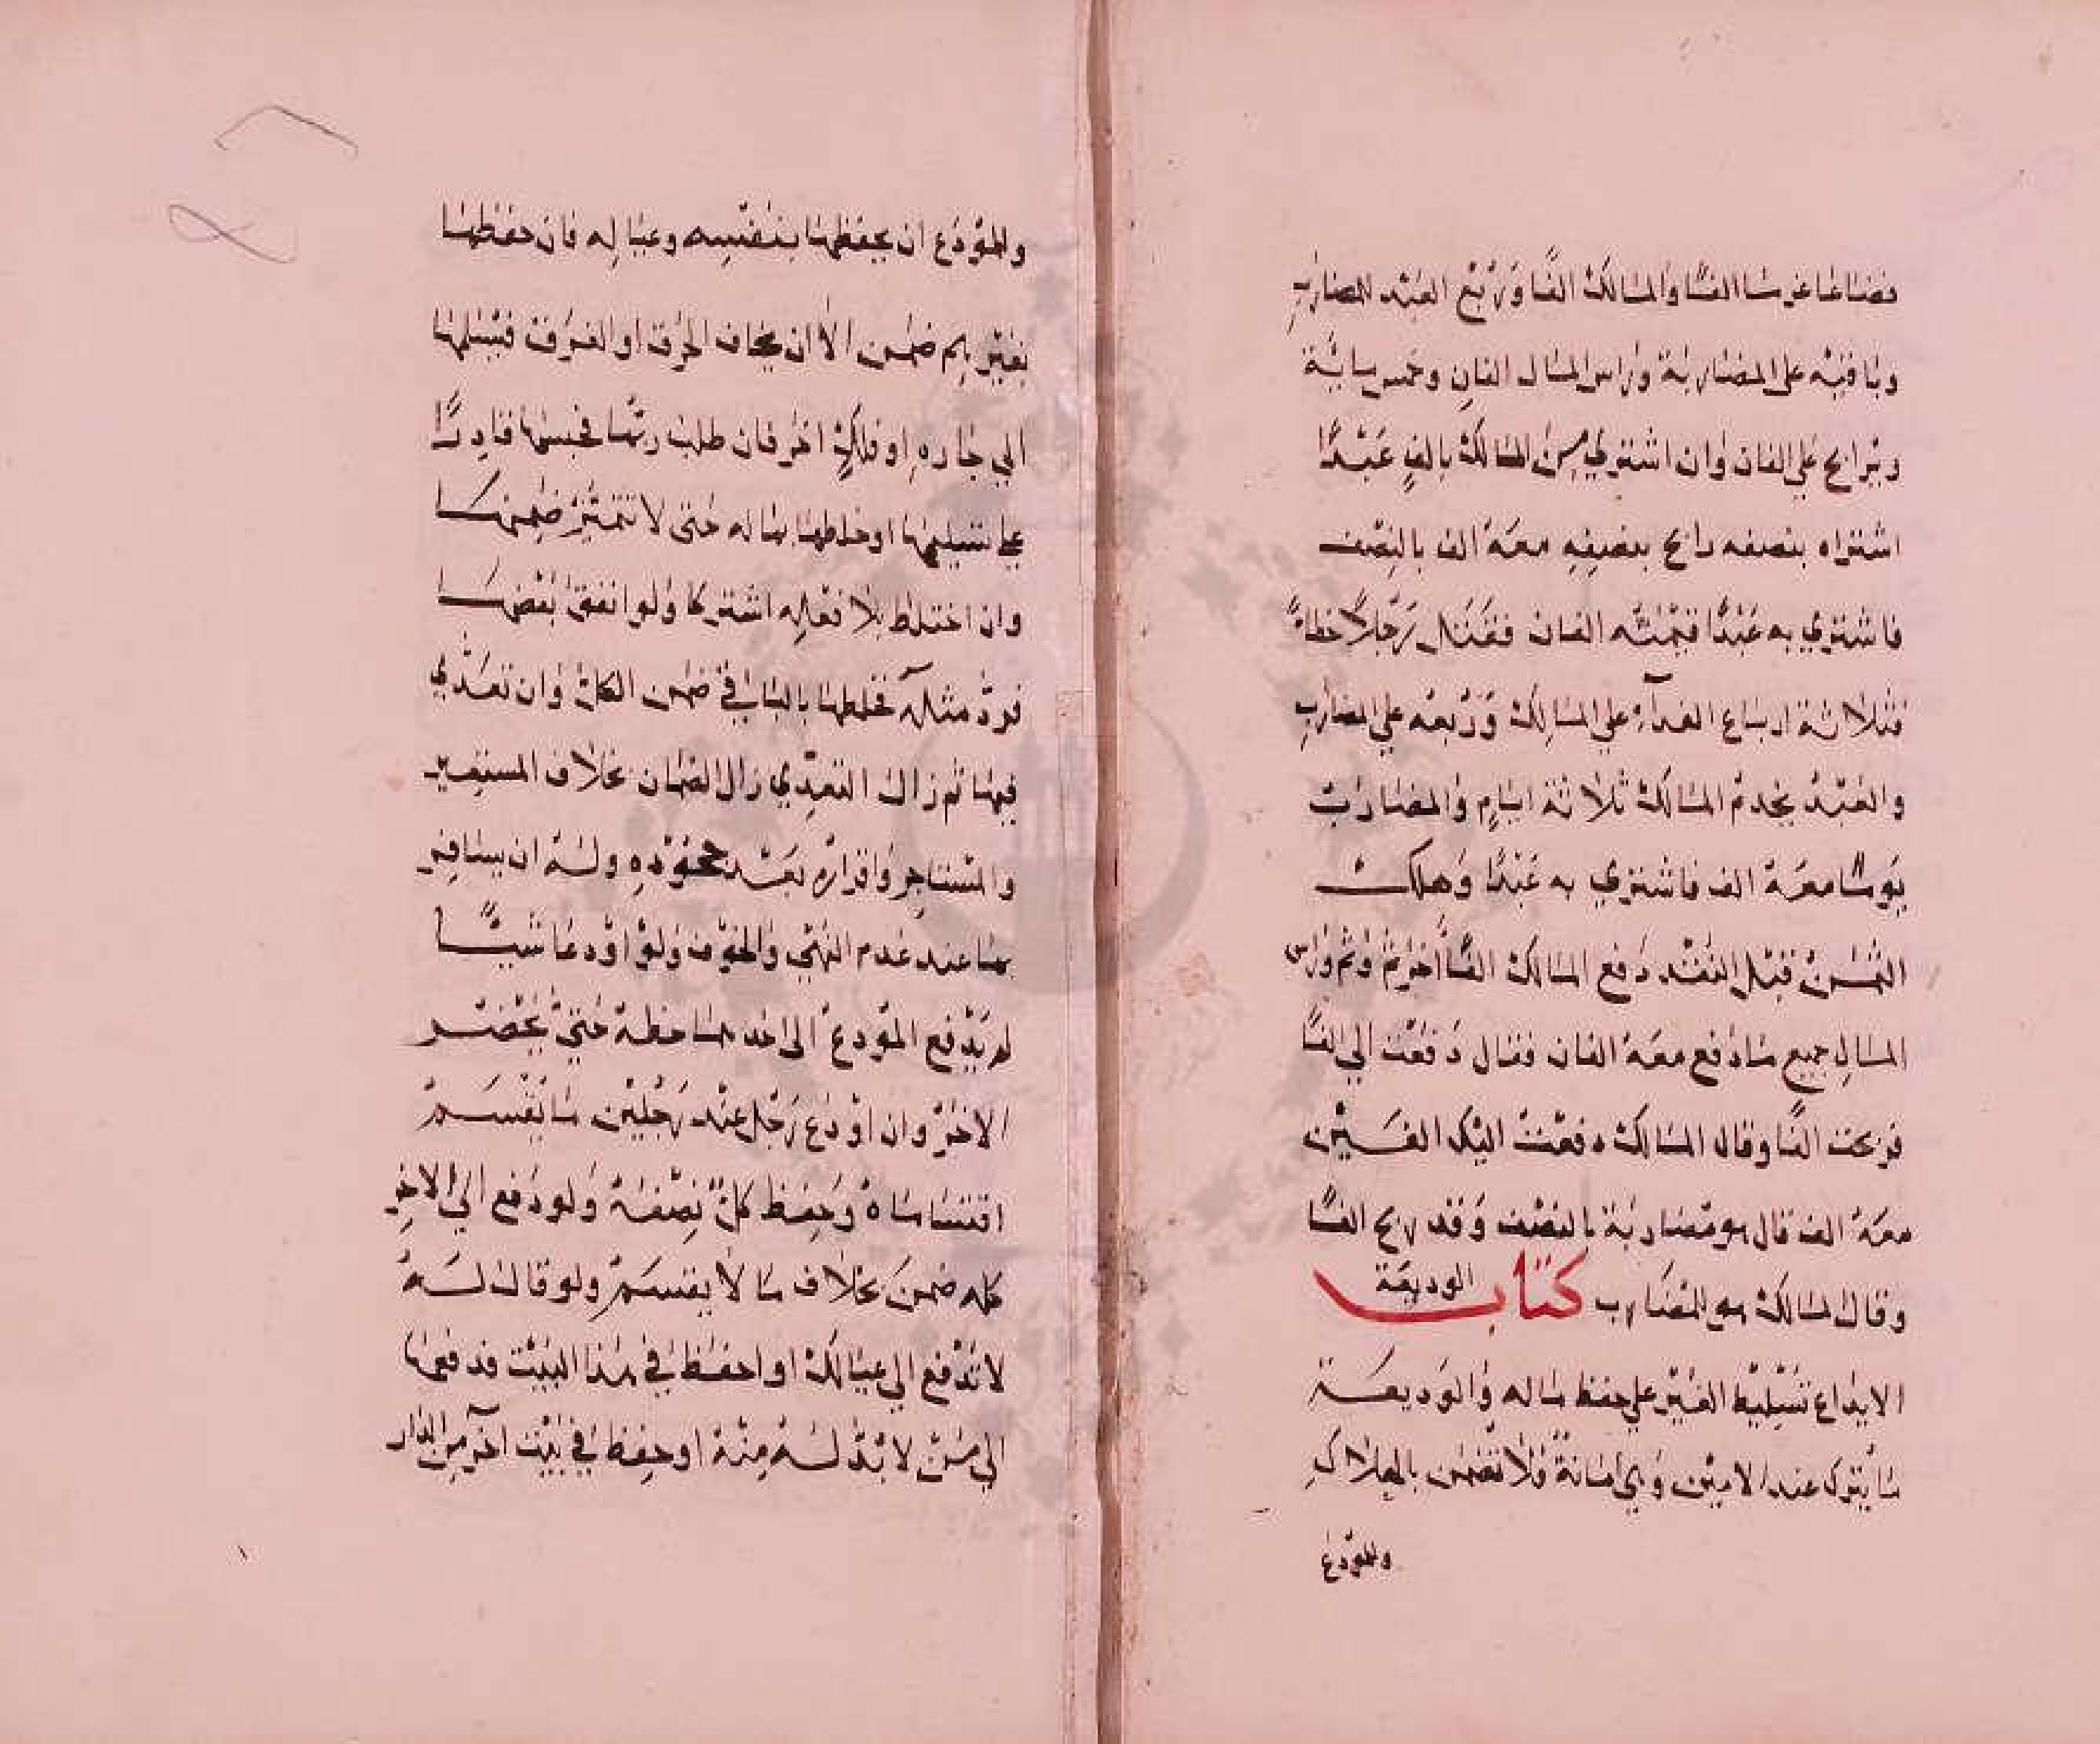 فضاعا غرما الفا والمالك الفا وربع العبد للمضارب
وباقيه على المضاربة وراس المال الفان وخمس مائة
ويرابح على الفان وان اشترى من المالك بالف عبدا
اشتراه بنصفه رابح بنصفه معه الف بالنصف
فاشترى به عبدا قيمته الفان فقتل رجلا خطاء
فثلاثة ارباع الفداء على المالك وربعه على المضارب
والعبد يخدم المالك ثلاثة ايام والمضارب
يوما معه الف فاشترى به عبدا وهلك
الثمن قبل النقد دفع المالك الفا اخر ثم وثم وراس
المال جميع ما دفع معه الفان فقال دفعت الي الفا
فربحت الفا وقال المالك دفعت اليك الفين
معه الف قال هو مضاربة بالنصف وقد ربح الفا
وقال المالك هو المضارب كتاب الوديعة
الايداع تسليط الغير على حفظ ماله والوديعة
ما يترك عند الامين وهي امانة فلا تضمن بالهلاك
وللمودع
وللمودع ان يحفظها بنفسه وعياله فان حفظها
بغيرهم ضمن الا ان يخاف الحرق او الغرق فيسلمها
الى جاره او فلك اخر فان طلب ربها فحبسها قادرا
على تسليمها او خلطها بماله حتى لا تتميز ضمنها
وان اختلط بلا فعله اشتركا ولو انفق بعضها
فرد مثله فخلطها بالباقي ضمن الكل وان تعدى
فيها ثم زال التعدي زال الضمان بخلاف المستعير
والمستاجر واقراره بعد جحوده وله ان يسافر
بها عند عدم النهي والخوف ولو اودعا شيئا
لم يدفع المودع الى احدهما حظه حتى يحضر
الاخر وان اودع رجل عند رجلين ما يقسم
اقتسماه وحفظ كل نصفه ولو دفع الى الاخر
كله ضمن بخلاف ما لا يقسم ولو قال له
لا تدفع الى عيالك او احفظ في هذا البيت فدفعها
الى من لا بد له منه او حفظ في بيت آخر من الدار